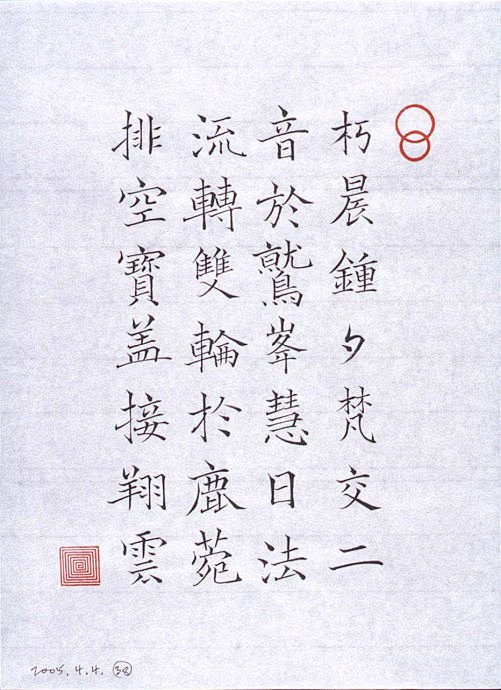 朽晨鍾夕梵交二
音於鷲峯慧日法
流轉雙輪於鹿菀
排空寶盖接翔雲
2005.4.4. 38